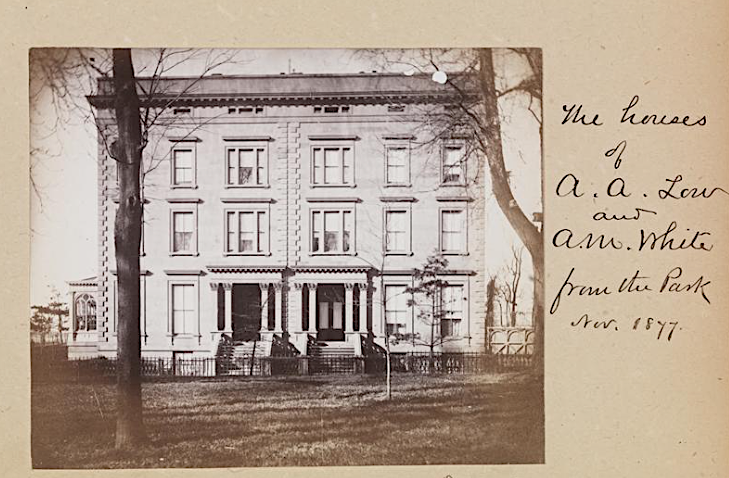 The houses
of
A. A. Low
and
A.M. White
from the Park
Nov. 1877.